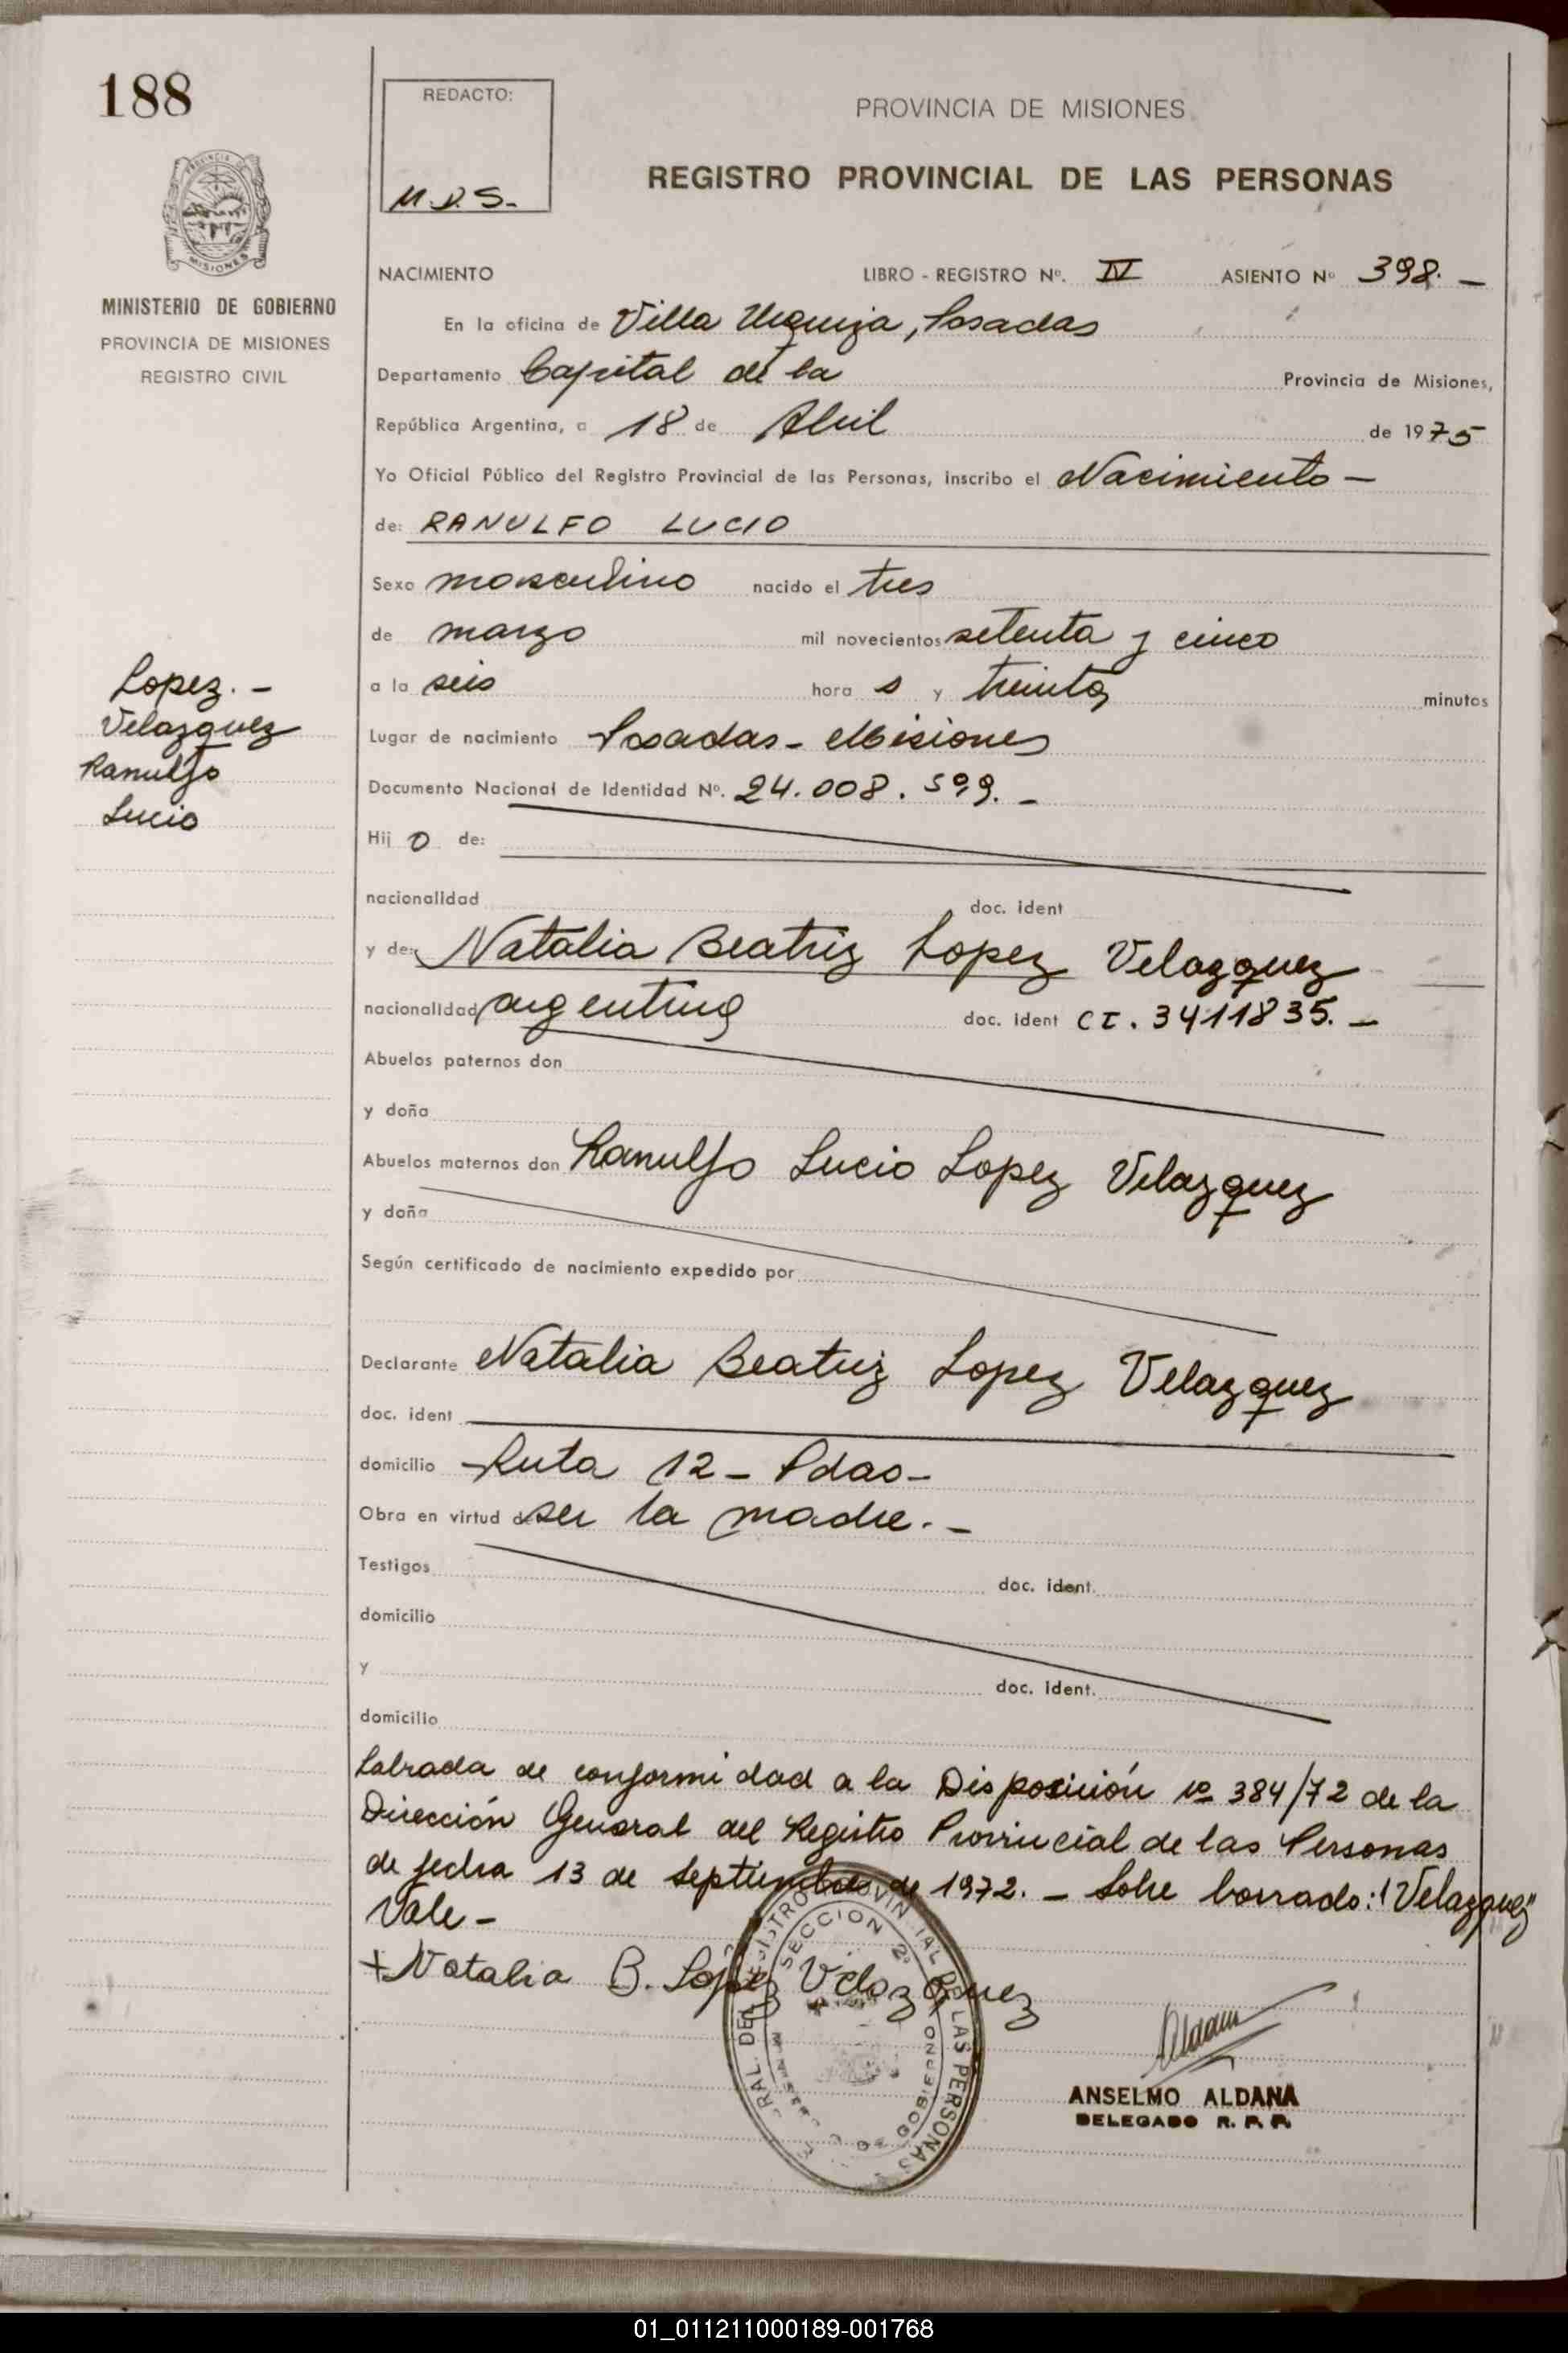 188
REDACTO:
M.D.S.-
PROVINCIA DE MISIONES
REGISTRO PROVINCIAL DE LAS PERSONAS
PROVINCIA DE
MISIONES
MINISTERIO DE GOBIERNO
PROVINCIA DE MISIONES
REGISTRO CIVIL
NACIMIENTO LIBRO - REGISTRO Nº. IV ASIENTO Nº 398.-
En la oficina de Villa Urquiza, Posadas
Departamento Capital de la Provincia de Misiones,
República Argentina, a 18 de Abril de 1975
Yo Oficial Público del Registro Provincial de las Personas, inscribo el Nacimiento-
de: RANULFO LUCIO
Sexo masculino nacido el tres
de marzo mil novecientos setenta y cinco
a la seis hora s y treinta minutos
Lugar de nacimiento Posadas - Misiones
Documento Nacional de Identidad Nº. 24.008.599.-
Lopez.-
Velazquez
Ranulfo
Lucio
Hij o de:
nacionalidad doc. ident
y de: Natalia Beatriz Lopez Velazquez
nacionalidad argentina doc. ident CI. 3411835.-
Abuelos paternos don
y doña
Abuelos maternos don Ranulfo Lucio Lopez Velazquez
y doña
Según certificado de nacimiento expedido por
Declarante Natalia Beatriz Lopez Velazquez
doc. ident
domicilio Ruta 12 - Pdas-
Obra en virtud de ser la madre.-
Testigos doc. ident.
domicilio
y doc. ident.
domicilio
Labrada de conformidad a la Disposición nº 384/72 de la
Dirección General del Registro Provincial de las Personas
de fecha 13 de septiembre de 1972. - Sobre borrado: "Velazquez"
Vale-
+Natalia B. Lopez Velazquez
SECCION 2º
LAS PERSONAS
GOBIERNO
Aldana
ANSELMO ALDANA
DELEGADO R. P. P.
01_011211000189-001768